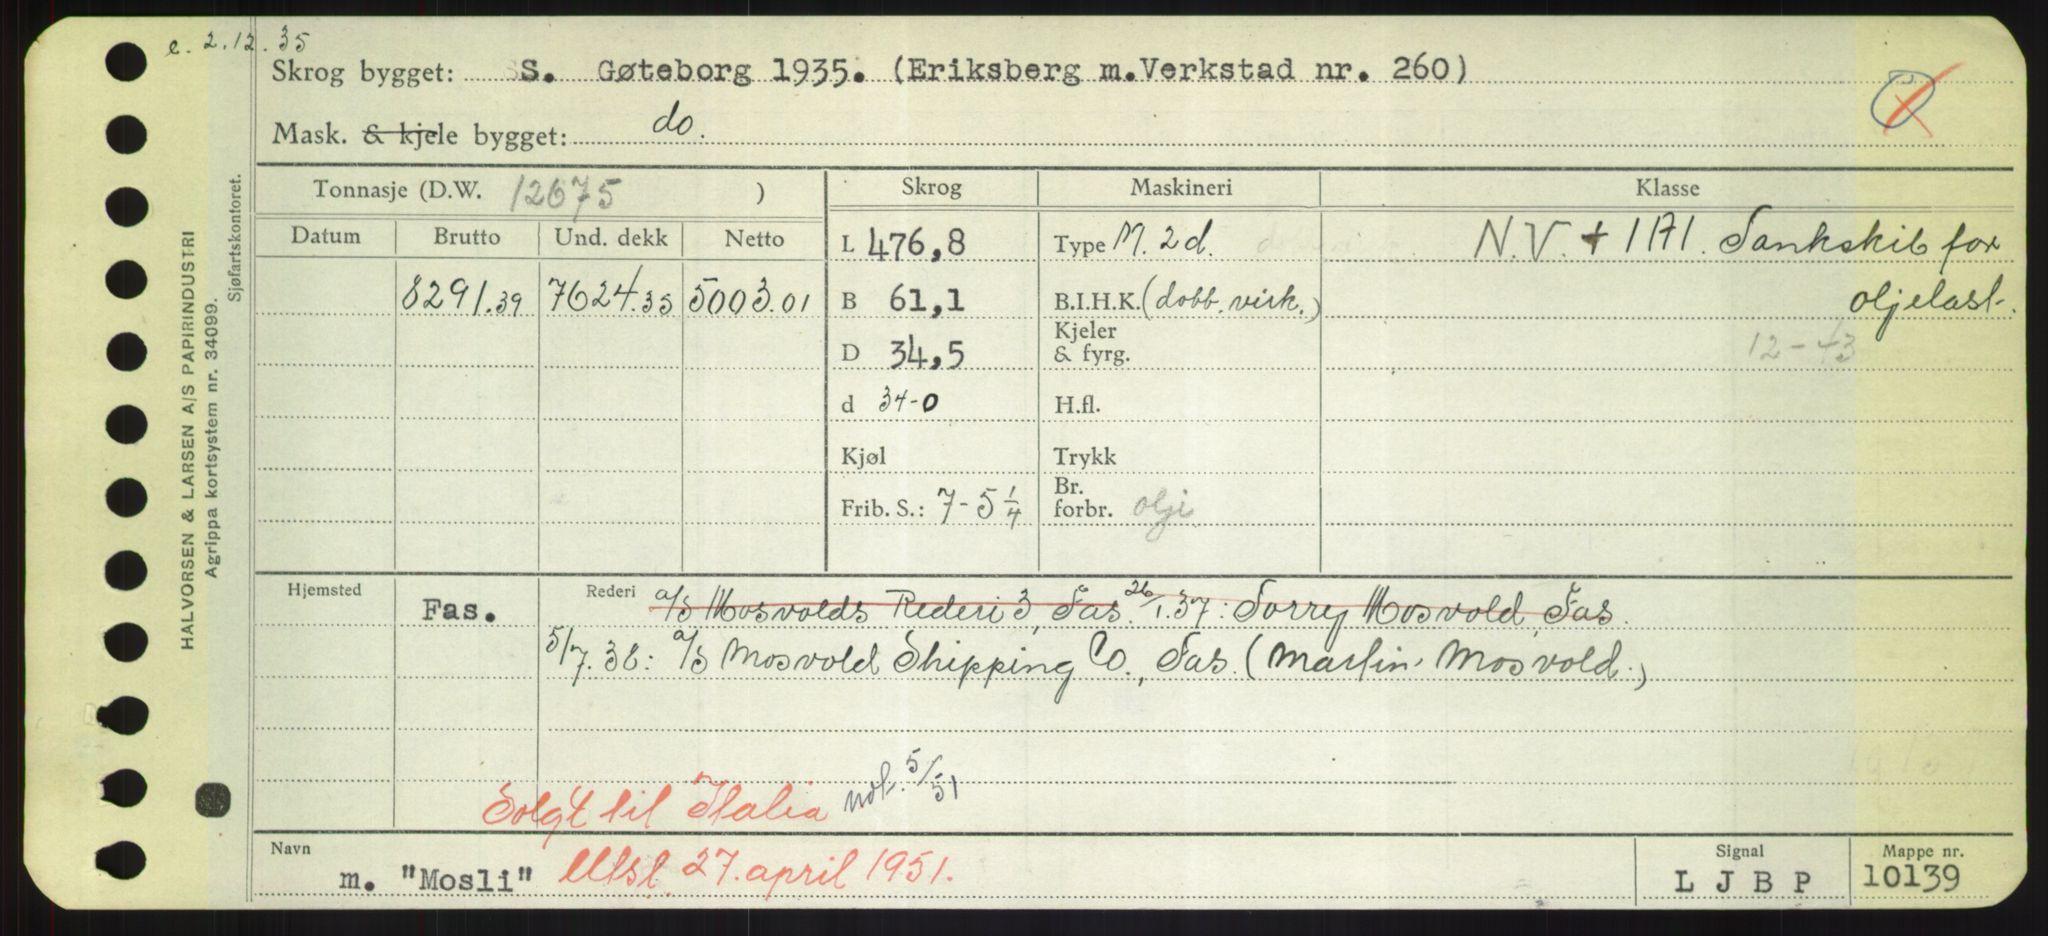 e. 2.12.35
Skrog bygget: S. Gøteborg 1935. (Eriksberg m.Verkstad nr. 260)
Mask. & kjele bygget: do.
HALVORSEN & LARSEN A/S PAPIRINDUSTRI
Agrippa kortsystem nr. 34099.
Sjøfartskontoret.
Tonnasje (D.W. 12675 )
Skrog
Maskineri
Klasse
Datum
Brutto
Und. dekk
Netto
8291.39
7624.35
5003.01
L 476,8
B 61,1
D 34,5
d 34-0
Kjøl
Frib. S.: 7-5 1/4
Type M. 2 d.
B.I.H.K. (dobb. virk.)
Kjeler
& fyrg.
H.fl.
Trykk
Br.
forbr. olje
N.V. + 1A1. Tankskib for
oljelast.
12-43
Hjemsted
Fas.
Rederi a/s Mosvolds Rederi 3, Fas. 26/1.37: Torry Mosvold, Fas.
5/7.38: a/s Mosvold Shipping Co., Fas. (Martin Mosvold.)
Solgt til Italia ndl. 5/51
Navn
m. "Mosli" Utsl. 27. april 1951.
Signal
L J B P
Mappe nr.
10139